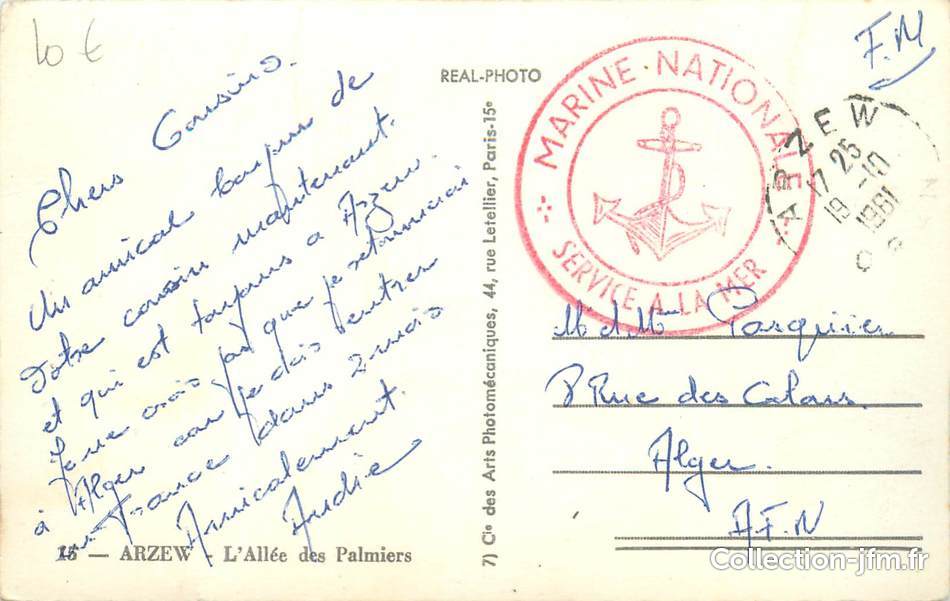 10 €
REAL-PHOTO
F.M
MARINE NATIONALE
SERVICE A LA MER
ARZEW
17 25
19 -10
1961
Chers Cousins.
Un amical bonjour de
votre cousin maintenant.
et qui est toujours a Arzew
Je ne crois pas que je retournerai
à Alger car je dois rentrer
en France dans 2 mois
Amicalement.
7) Cie des Arts Photomécaniques, 44, rue Letellier, Paris-15e
M et Mme Pasquier
8 Rue des
Alger.
A.F.N
15 — ARZEW - L'Allée des Palmiers
Collection-jfm.fr